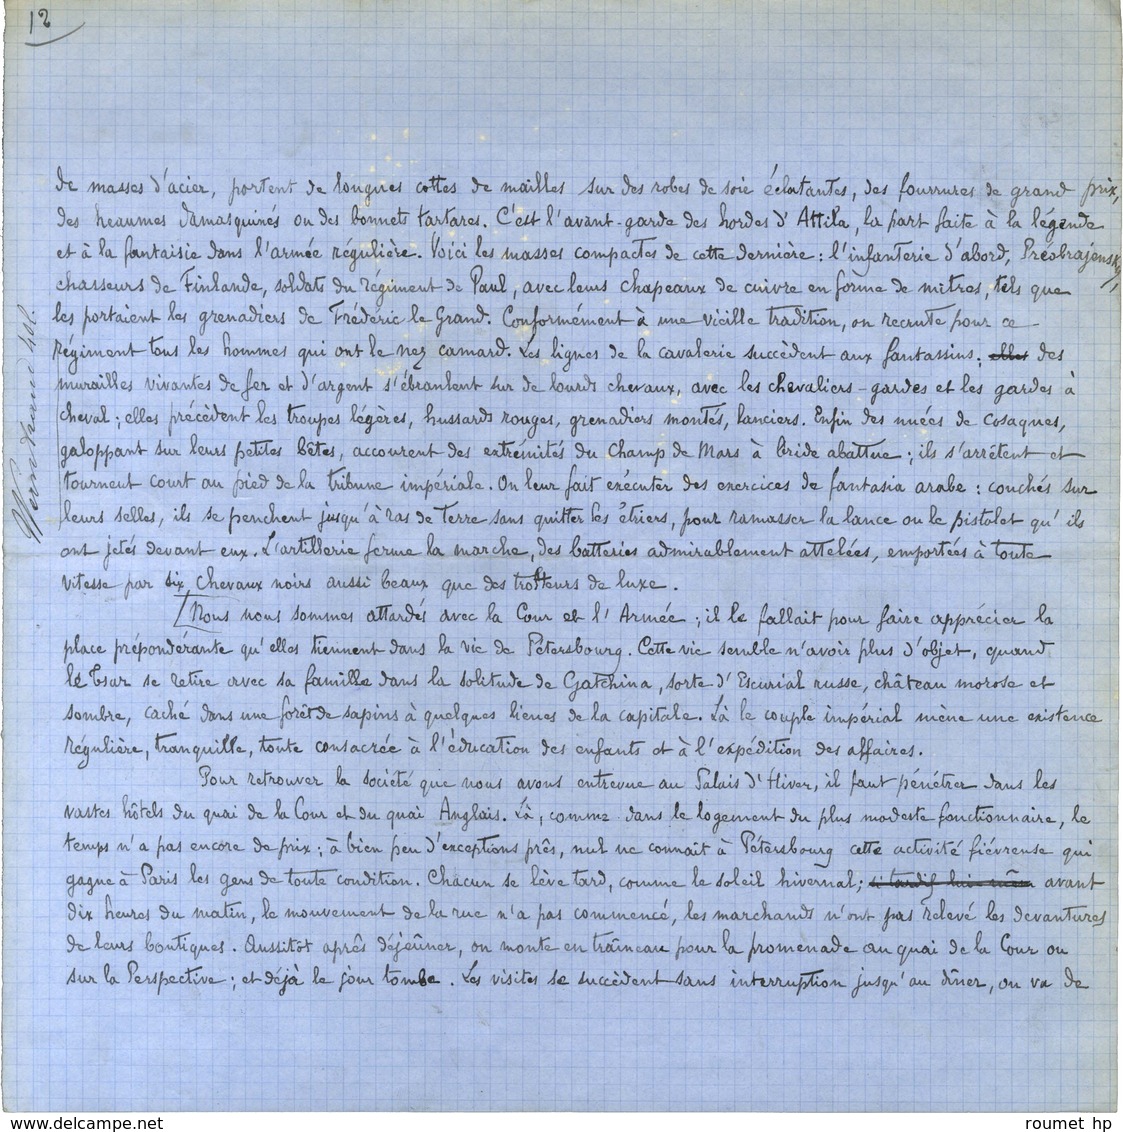 12
de masses d'acier, portent de longues cottes de mailles sur des robes de soie éclatantes, des fourrures de grand prix,
des heaumes damasquinés ou des bonnets tartares. C'est l'avant-garde des hordes d'Attila, la part faite à la légende
et à la fantaisie dans l'armée régulière. Voici les masses compactes de cette dernière : l'infanterie d'abord, Préobrajensky,
chasseurs de Finlande, soldats du régiment de Paul, avec leurs chapeaux de cuivre en forme de mitres, tels que
les portaient les grenadiers de Frédéric le Grand. Conformément à une vieille tradition, on recrute pour ce
régiment tous les hommes qui ont le nez camard. Les lignes de la cavalerie succèdent aux fantassins : elles des
murailles vivantes de fer et d'argent s'ébranlent sur de lourds chevaux, avec les chevaliers-gardes et les gardes à
cheval ; elles précèdent les troupes légères, hussards rouges, grenadiers montés, lanciers. Enfin des nuées de Cosaques,
galoppant sur leurs petites bêtes, accourent des extremités du Champ de Mars à bride abattue ; ils s'arrêtent et
tournent court au pied de la tribune impériale. On leur fait exécuter des exercices de fantasia arabe : couchés sur
leurs selles, ils se penchent jusqu'à ras de terre sans quitter les étriers, pour ramasser la lance ou le pistolet qu'ils
ont jetés devant eux. L'artillerie ferme la marche, des batteries admirablement attelées, emportées à toute
vitesse par six chevaux noirs aussi beaux que des trotteurs de luxe.
[Nous nous sommes attardés avec la Cour et l'Armée ; il le fallait pour faire apprécier la
place prépondérante qu'elles tiennent dans la vie de Pétersbourg. Cette vie semble n'avoir plus d'objet, quand
le Tsar se retire avec sa famille dans la solitude de Gatchina, sorte d'Escurial russe, château morose et
sombre, caché dans une forêt de sapins à quelques lieues de la capitale. Là le couple impérial mène une existence
régulière, tranquille, toute consacrée à l'éducation des enfants et à l'expédition des affaires.
Pour retrouver la société que nous avons entrevue au Palais d'Hiver, il faut pénétrer dans les
vastes hôtels du quai de la Cour et du quai Anglais. Là, comme dans le logement du plus modeste fonctionnaire, le
temps n'a pas encore de prix ; à bien peu d'exceptions près, nul ne connaît à Pétersbourg cette activité fiévreuse qui
gagne à Paris les gens de toute condition. Chacun se lève tard, comme le soleil hivernal ; si tardif lui-même avant
dix heures du matin, le mouvement de la rue n'a pas commencé, les marchands n'ont pas relevé les devantures
de leurs boutiques. Aussitôt après déjeûner, on monte en traîneau pour la promenade au quai de la Cour ou
sur la Perspective ; et déjà le jour tombe. Les visites se succèdent sans interruption jusqu'au dîner, on va de
www.delcampe.net
roumet hp